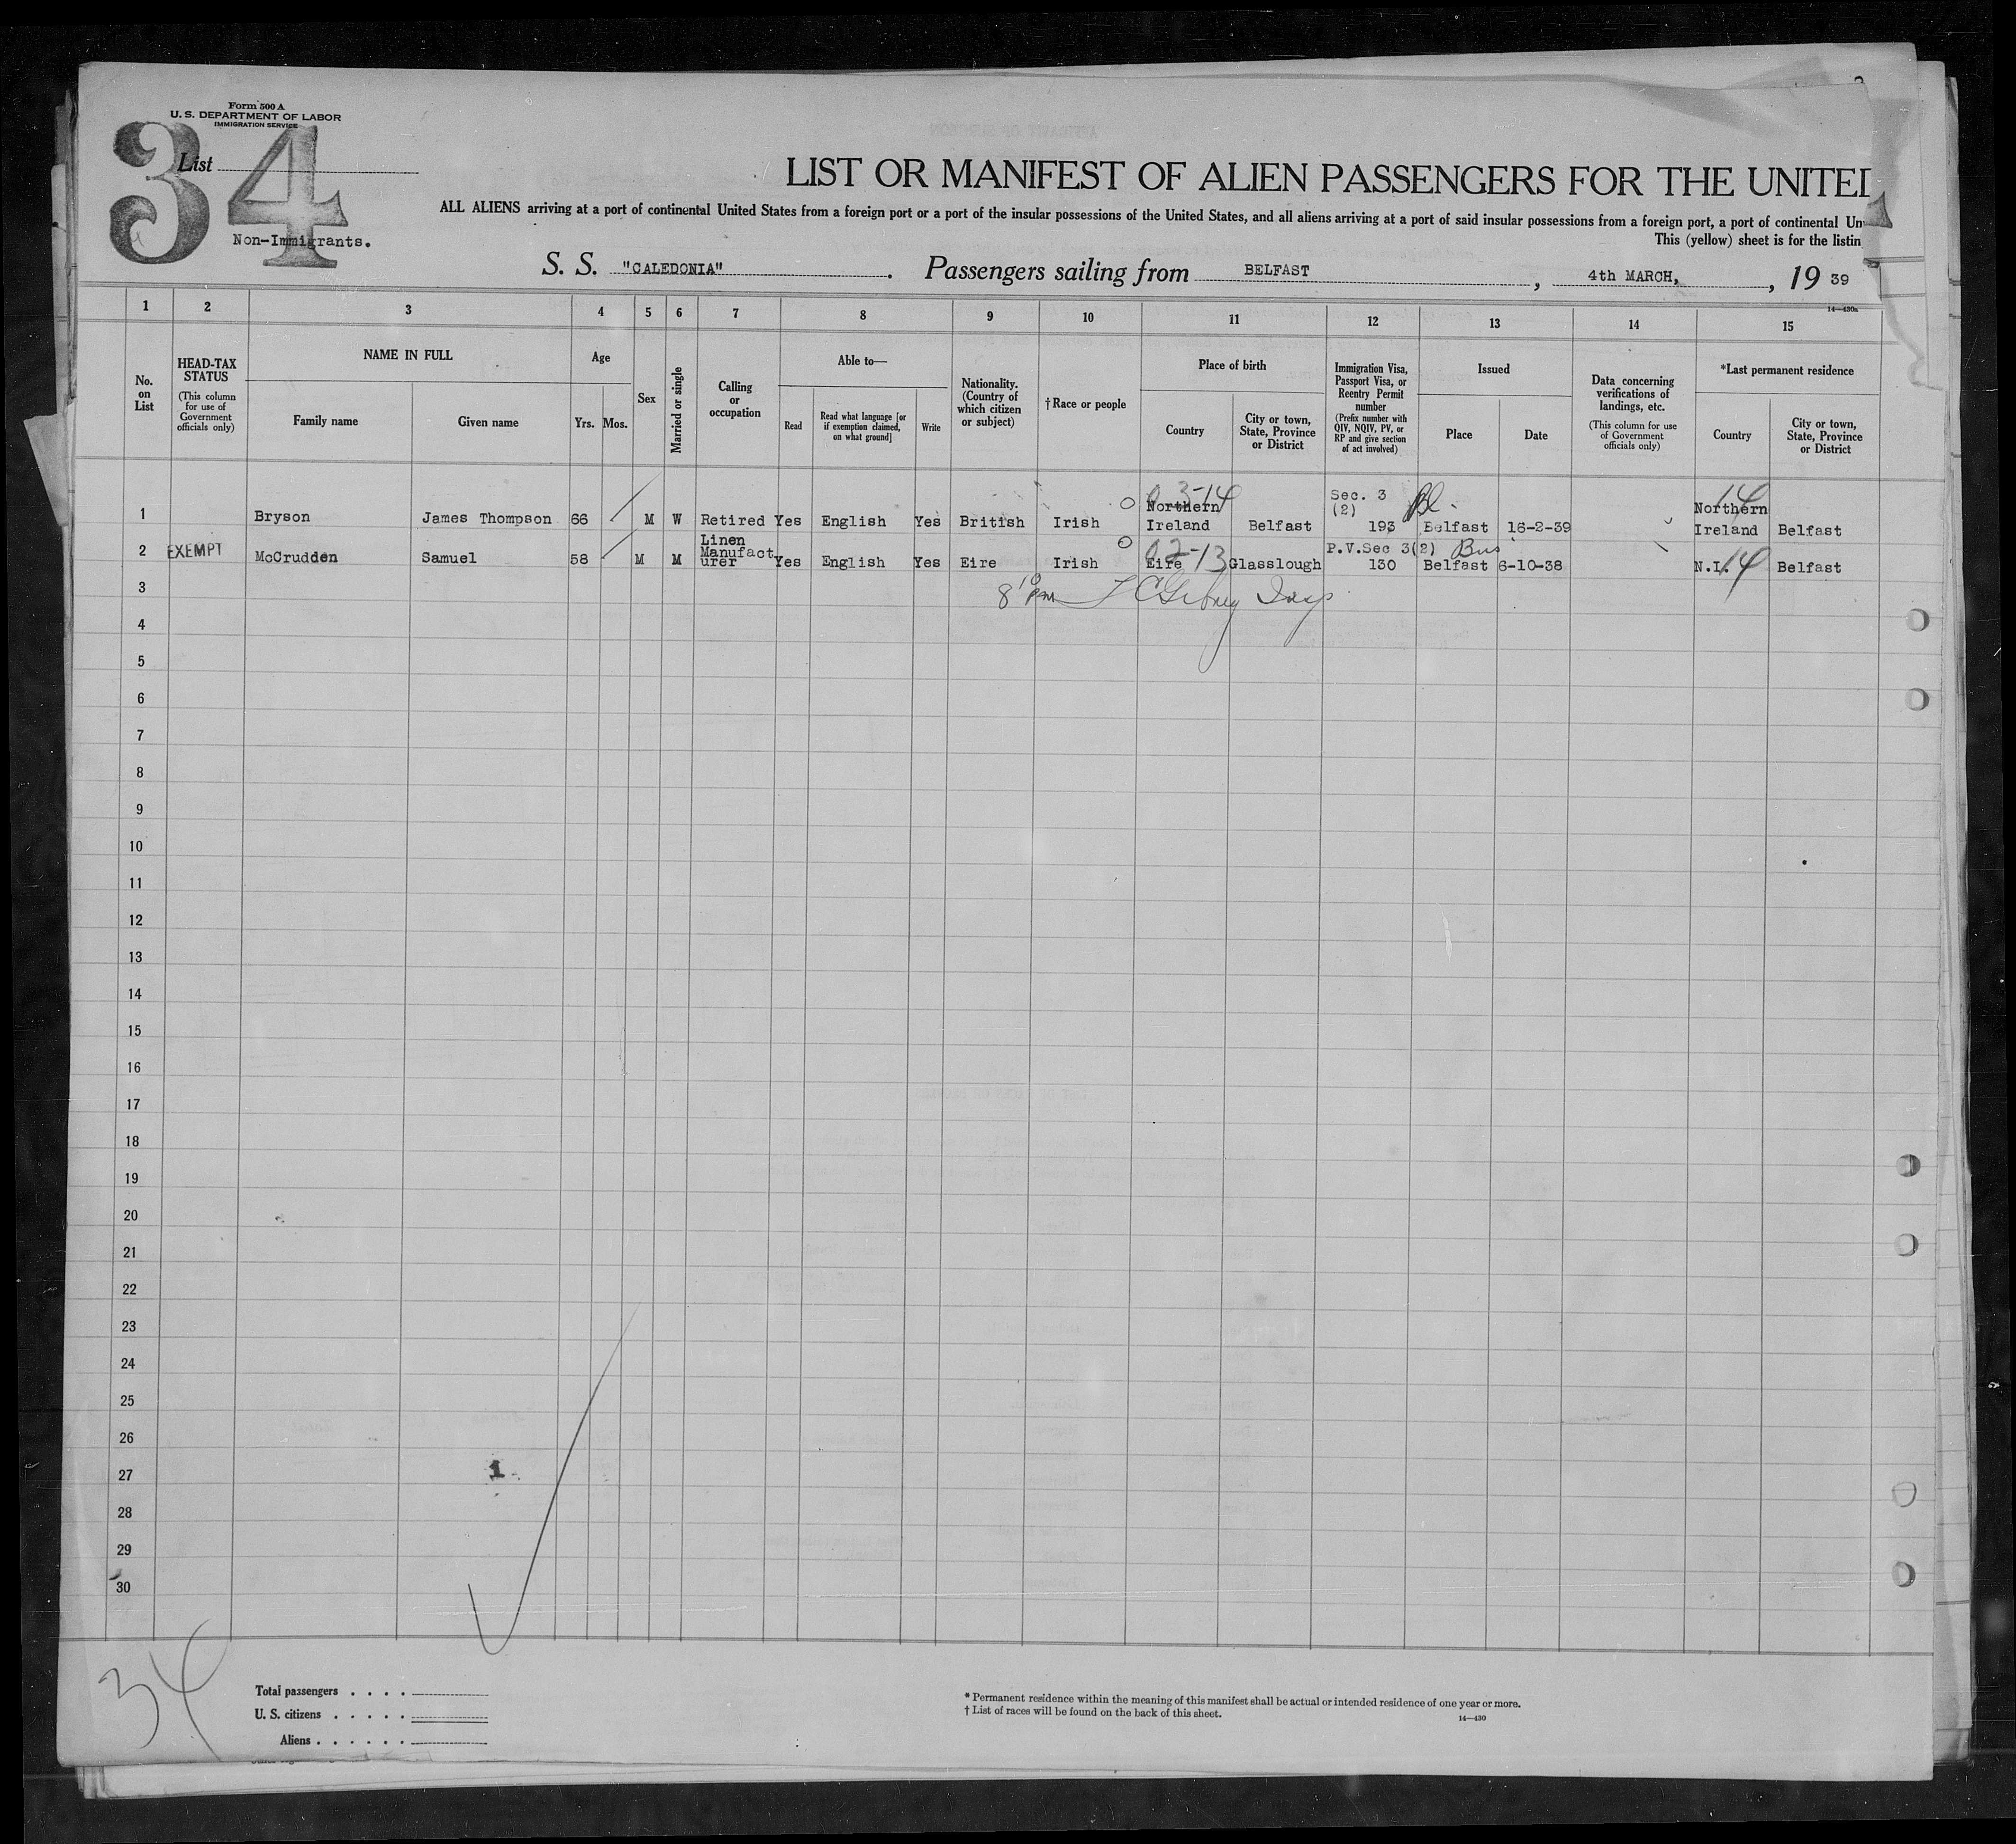 Form 500 A
U. S. DEPARTMENT OF LABOR
IMMIGRATION SERVICE
34
List
Non-Immigrants.
LIST OR MANIFEST OF ALIEN PASSENGERS FOR THE UNITED
ALL ALIENS arriving at a port of continental United States from a foreign port or a port of the insular possessions of the United States, and all aliens arriving at a port of said insular possessions from a foreign port, a port of continental Un
This (yellow) sheet is for the listin
S. S. "CALEDONIA". Passengers sailing from BELFAST, 4th MARCH, 19 39
14—430a
1 2 3 4 5 6 7 8 9 10 11 12 13 14 15
No. on List
HEAD-TAX STATUS
(This column for use of Government officials only)
NAME IN FULL
Family name
Given name
Age
Yrs. Mos.
Sex
Married or single
Calling or occupation
Able to—
Read
Read what language [or if exemption claimed, on what ground]
Write
Nationality. (Country of which citizen or subject)
†Race or people
Place of birth
Country
City or town, State, Province or District
Immigration Visa, Passport Visa, or Reentry Permit number
(Prefix number with QIV, NQIV, PV, or RP and give section of act involved)
Issued
Place
Date
Data concerning verifications of landings, etc.
(This column for use of Government officials only)
*Last permanent residence
Country
City or town, State, Province or District
0 3-14
1 Bryson James Thompson 66 M W Retired Yes English Yes British Irish Northern Ireland Belfast Sec. 3 (2) 193 Belfast 16-2-39 Northern Ireland Belfast
14
2 EXEMPT McCrudden Samuel 58 M M Linen Manufacturer Yes English Yes Eire Irish Eire Glasslough P.V.Sec 3(2) 130 Belfast 6-10-38 N.I. Belfast
02-13
Bus
14
3
8 10 pm
4
5
6
7
8
9
10
11
12
13
14
15
16
17
18
19
20
21
22
23
24
25
26
27
1
28
29
30
34
Total passengers . . . .
U. S. citizens . . . . .
Aliens . . . . . .
* Permanent residence within the meaning of this manifest shall be actual or intended residence of one year or more.
† List of races will be found on the back of this sheet.
14—430